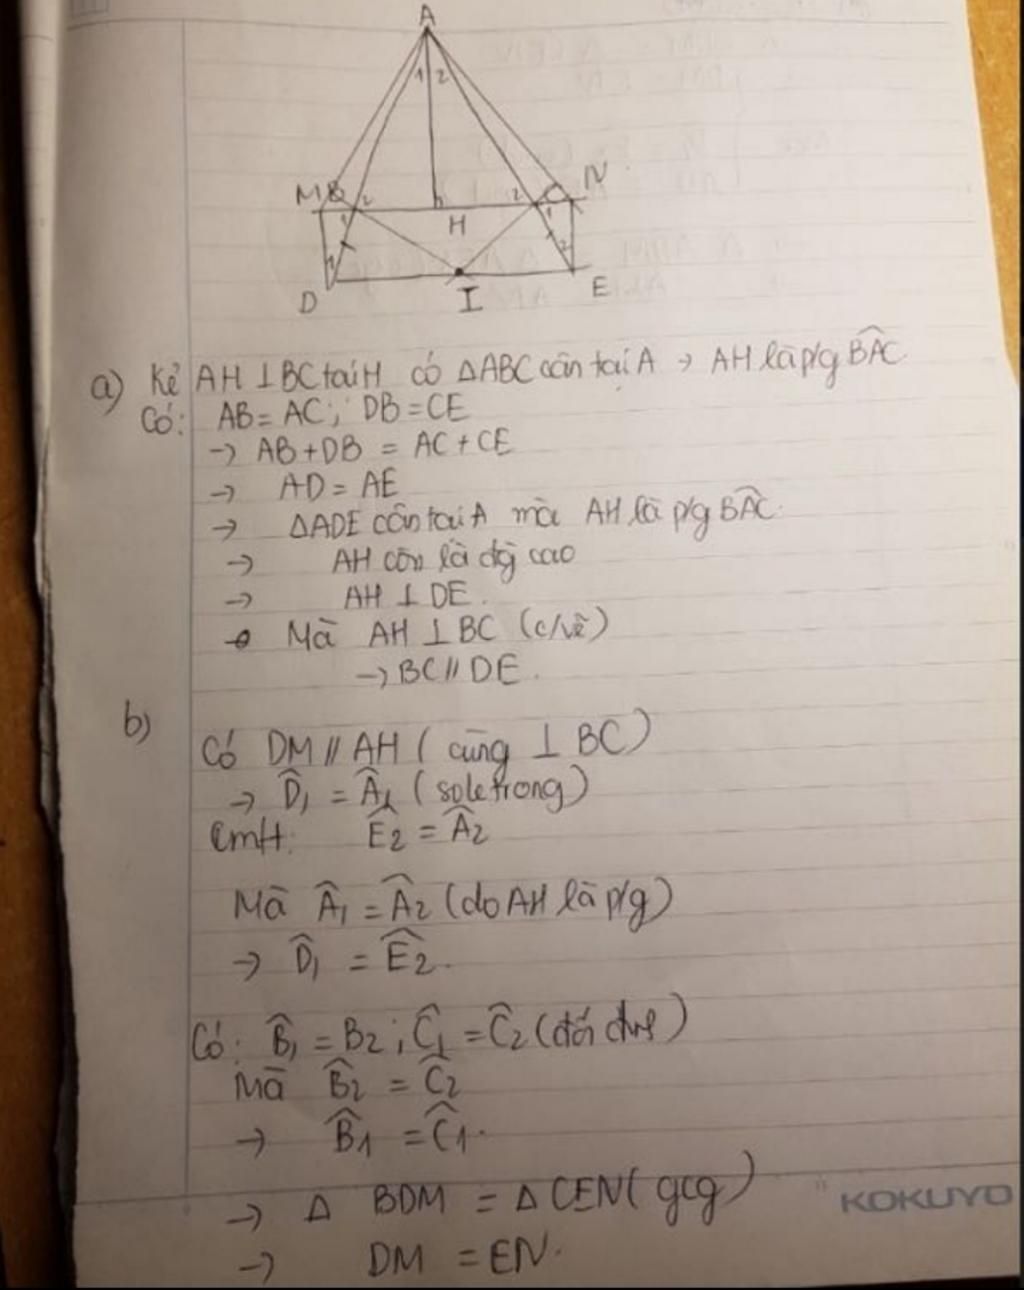 A
1 2
M B 2 2 C N
1 H 1
1 2
D I E
a) Kẻ AH ⊥ BC tại H có ΔABC cân tại A → AH là p/g BÂC
Có: AB = AC; DB = CE
→ AB + DB = AC + CE
→ AD = AE
→ ΔADE cân tại A mà AH là p/g BÂC.
→ AH còn là đg cao
→ AH ⊥ DE.
→ Mà AH ⊥ BC (c/vẽ)
→ BC // DE.
b)
Có DM // AH (cùng ⊥ BC)
→ D̂₁ = Â₁ (sole trong)
CmH: Ê₂ = Â₂
Mà Â₁ = Â₂ (do AH là p/g)
→ D̂₁ = Ê₂.
Có: B̂₁ = B₂; Ĉ₁ = Ĉ₂ (đối đỉnh)
Mà B̂₂ = Ĉ₂
→ B̂₁ = Ĉ₁.
→ Δ BDM = Δ CEN (gcg)
KOKUYO
→ DM = EN.